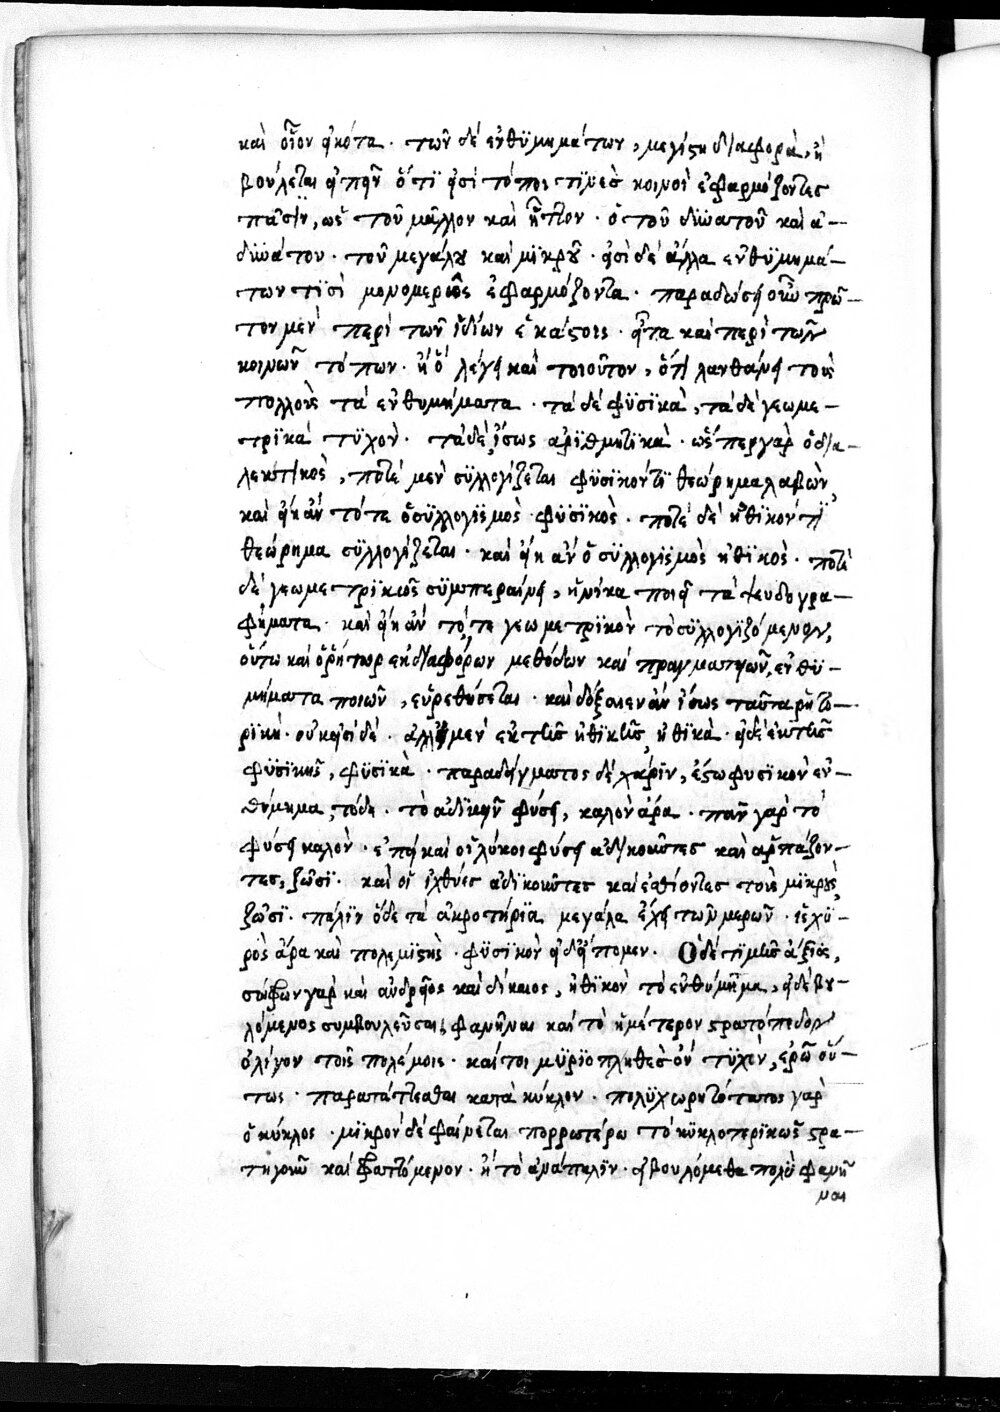 καὶ οἷον εἰκότα. τῶν δὲ ἐνθυμημάτων, μεγίστη διαφορὰ, ἢ
βούλεται εἰπεῖν ὅτι εἰσὶ τόποι τινὲς κοινοὶ ἐφαρμόζοντες
πᾶσιν, ὡς τοῦ μᾶλλον καὶ ἧττον. ὁ τοῦ δυνατοῦ καὶ ἀ-
δυνάτου. τοῦ μεγάλου καὶ μικροῦ. εἰσὶ δὲ ἀλλὰ ἐνθυμημά-
των τισὶ μονομερῶς ἐφαρμόζοντα. παραδώσει οὖν πρῶ-
τον μὲν περὶ τῶν ἰδίων ἑκάστοις. εἶτα καὶ περὶ τῶν
κοινῶν τόπων. ἢ ὃ λέγει καὶ τοιοῦτον, ὅτι λανθάνει τοὺς
πολλοὺς τὰ ἐνθυμήματα. τὰ δὲ φυσικὰ, τὰ δὲ γεωμε-
τρικὰ τυχὸν. τὰ δὲ ἴσως ἀριθμητικὰ. ὥσπερ γὰρ ὁ δια-
λεκτικὸς, ποτὲ μὲν συλλογίζεται φυσικόν τι θεώρημα λαβὼν
καὶ εἴη ἂν τότε ὁ συλλογισμὸς φυσικὸς. ποτὲ δὲ ἠθικόν τι
θεώρημα συλλογίζεται. καὶ εἴη ἂν ὁ συλλογισμὸς ἠθικὸς. ποτὲ
δὲ γεωμετρικῶς συμπεραίνει, ἡνίκα ποιεῖ τὰ ψευδογρα-
φήματα. καὶ εἴη ἂν τότε γεωμετρικὸν τὸ συλλογιζόμενον,
οὕτω καὶ ὁ ῥήτωρ ἐκ διαφόρων μεθόδων καὶ πραγματειῶν, ἐνθυ-
μήματα ποιῶν, εὑρεθήσεται. καὶ δόξαιεν ἂν ἴσως ταῦτα ῥητο-
ρικὴ. οὐκ εἰσὶ δὲ. ἀλλ' εἰ μὲν ἐκ τῆς ἠθικῆς, ἠθικὰ. εἰ δὲ ἐκ τῆς
φυσικῆς, φυσικὰ. παραδείγματος δὲ χάριν, ἔστω φυσικὸν ἐν-
θύμημα, τόδε. τὸ ἀδικεῖν φύσει, καλὸν ἄρα. πᾶν γὰρ τὸ
φύσει καλὸν. ἐπεὶ καὶ οἱ λύκοι φύσει ἀδικοῦντες καὶ ἁρπάζον-
τες, ζῶσι. καὶ οἱ ἰχθύες ἀδικοῦντες καὶ ἐσθίοντες τοὺς μικροὺς
ζῶσι. πάλιν ὅδε τὰ ἀκροτήρια μεγάλα ἔχει τῶν μερῶν. ἰσχυ-
ρὸς ἄρα καὶ πολεμιστὴς. φυσικὸν εἰδ' εἴπομεν. Ὁ δὲ τιμῆς ἄξιος,
σώφρων γὰρ καὶ ἀνδρεῖος καὶ δίκαιος, ἠθικὸν τὸ ἐνθύμημα, εἰ δὲ βου-
λόμενος συμβουλεῦσαι, φανῆναι καὶ τὸ ἡμέτερον στρατόπεδον
ὀλίγον τοῖς πολέμοις. καίτοι μυριοπληθὲς ὂν τυχὸν, ἐρῶ οὕ-
τως. παρατάττεσθαι κατὰ κύκλον. πολυχωρητότατος γὰρ
ὁ κύκλος. μικρὸν δὲ φαίνεται πορρωτέρω τὸ κυκλοτερικῶς στρα-
τηγοῦν καὶ ταττόμενον. ἢ τὸ ἀνάπαλιν. εἰ βουλόμεθα πολὺ φανῆ
ναι